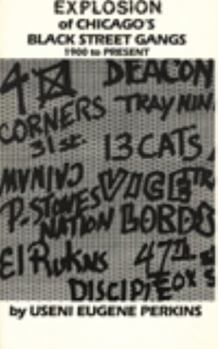 EXPLOSION
of CHICAGO'S
BLACK STREET GANGS
1900 to PRESENT
DEACON
CORNERS TRAY NIN
31st.
13 CATS
VICE
P. STONES
NATION LORDS
El Rukns 47th
DISCIPLE
by USENI EUGENE PERKINS